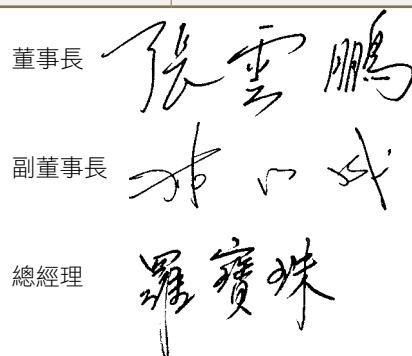 董事長 張雲鵬
副董事長 林
總經理 羅寶珠